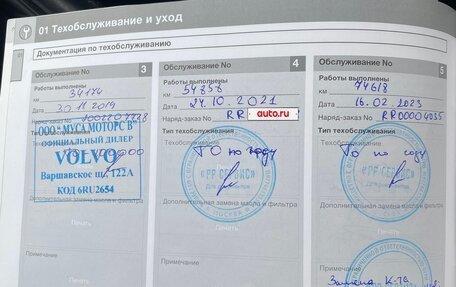 01 Техобслуживание и уход
Документация по техобслуживанию
Обслуживание No 3
Работы выполнены
км 34174
Дата 30.11.2019
Наряд-заказ No
ООО "МУСА МОТОРС В"
ОФИЦИАЛЬНЫЙ ДИЛЕР
VOLVO
Варшавское ш., 122А
КОД 6RU2654
Дополнительная замена масла и фильтра
Печать
Примечание
Обслуживание No 4
Работы выполнены
км 54858
Дата 24.10.2021
Наряд-заказ No RR
auto.ru
Тип техобслуживания
ТО по году
"РР СЕРВИС"
Дополнительная замена масла и фильтра
Печать
Примечание
Обслуживание No 5
Работы выполнены
км 74618
Дата 16.02.2023
Наряд-заказ No RR00004035
Тип техобслуживания
ТО по году
"РР СЕРВИС"
Дополнительная замена масла и фильтра
Печать
Примечание
Замена